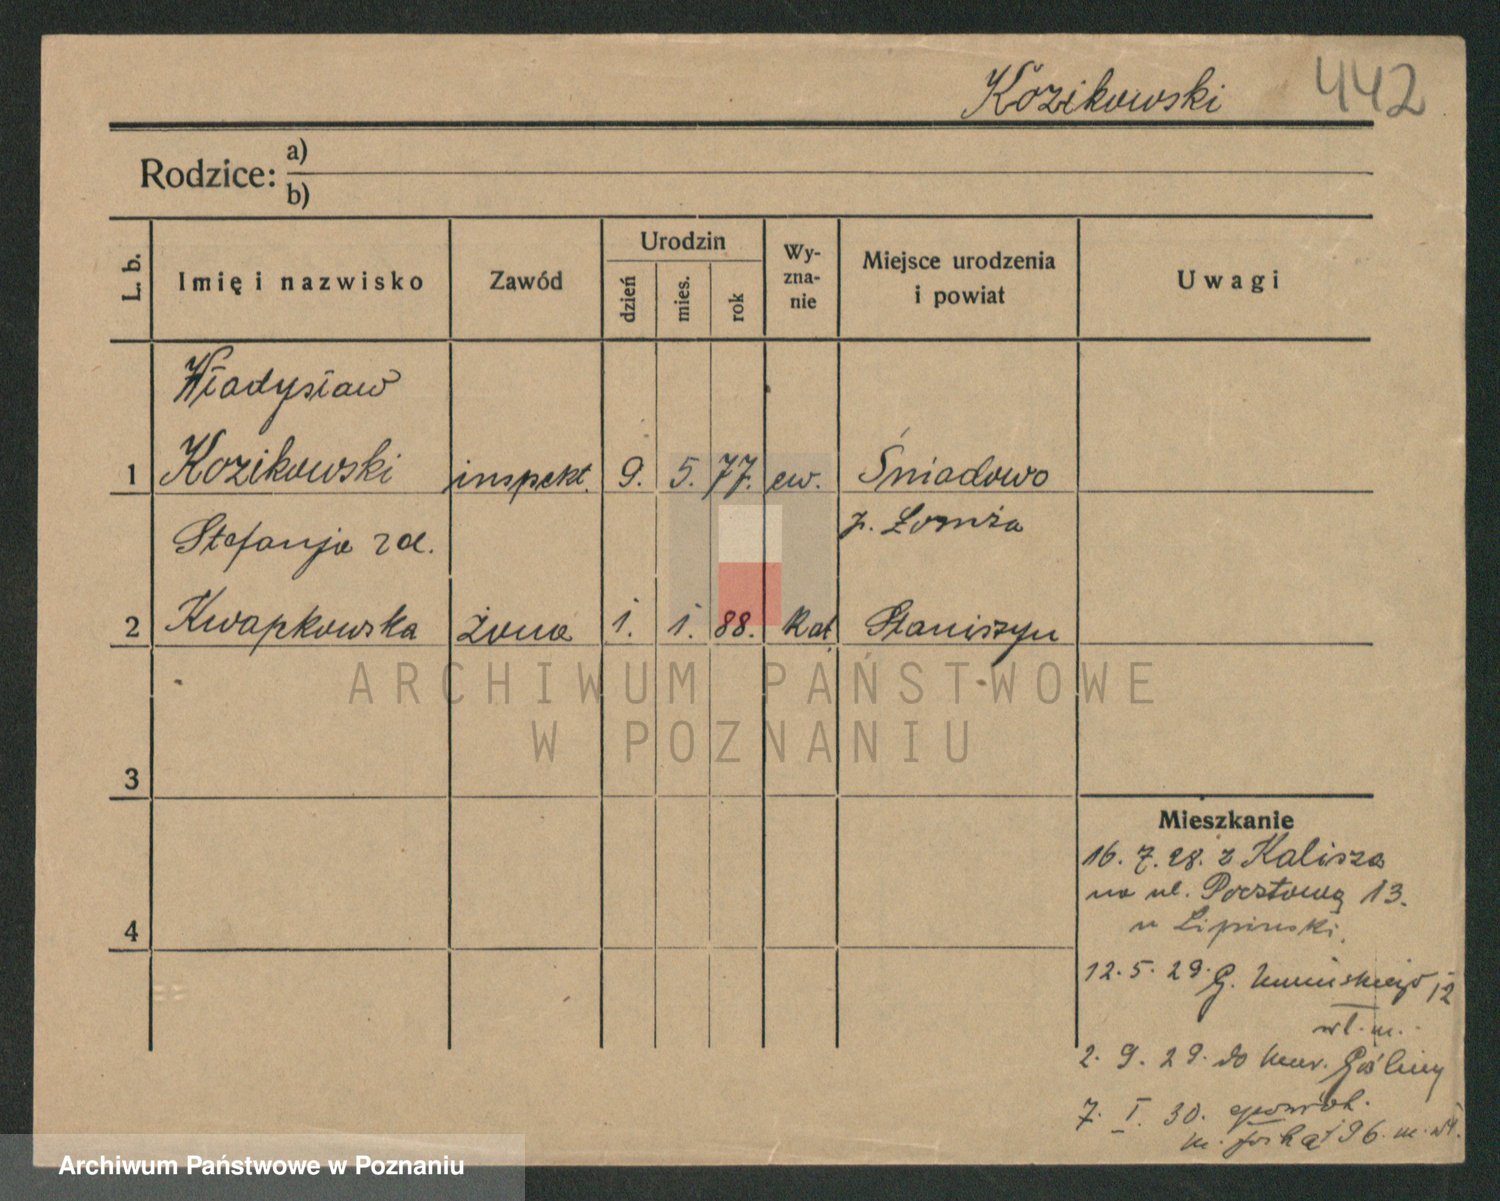 Kozikowski 442
Rodzice: a)
b)
L. b. Imię i nazwisko Zawód Urodzin dzień mies. rok Wy-zna-nie Miejsce urodzenia i powiat Uwagi
Władysław
1 Kozikowski inspekt. 9. 5. 77. ew. Śniadowo
Stefanja zd. p. Łomża
2 Kwapkowska żona 1. 1. 88. kat. Staniszyn
ARCHIWUM PAŃSTWOWE
W POZNANIU
3
Mieszkanie
16. 7. 28. z Kalisza
na ul. Pocztową 13.
4
u Lipinski.
12. 5. 29. G. 12
wł. m.
2. 9. 29. do Mur. Gośliny
7. I. 30.
m. 96. m. wł.
Archiwum Państwowe w Poznaniu